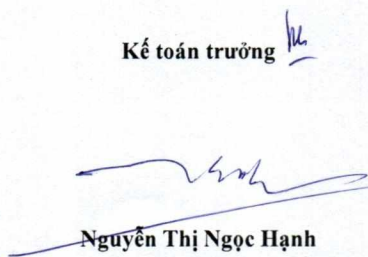 Kế toán trưởng
Nguyễn Thị Ngọc Hạnh